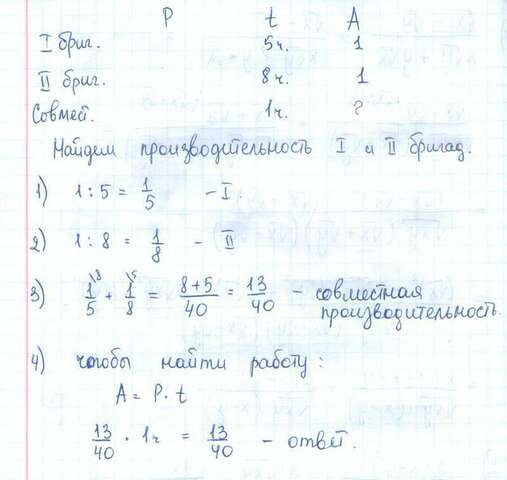 P t A
I бриг. 5ч. 1
II бриг. 8ч. 1
Совмей. 1ч. ?
Найдем производительность I и II бригад.
1) 1 : 5 = 1/5 – I
2) 1 : 8 = 1/8 – II
3) 1\8/5 + 1\5/8 = 8+5/40 = 13/40 – совместная
производительность.
4) чтобы найти работу:
A = P · t
13/40 · 1ч = 13/40 – ответ.